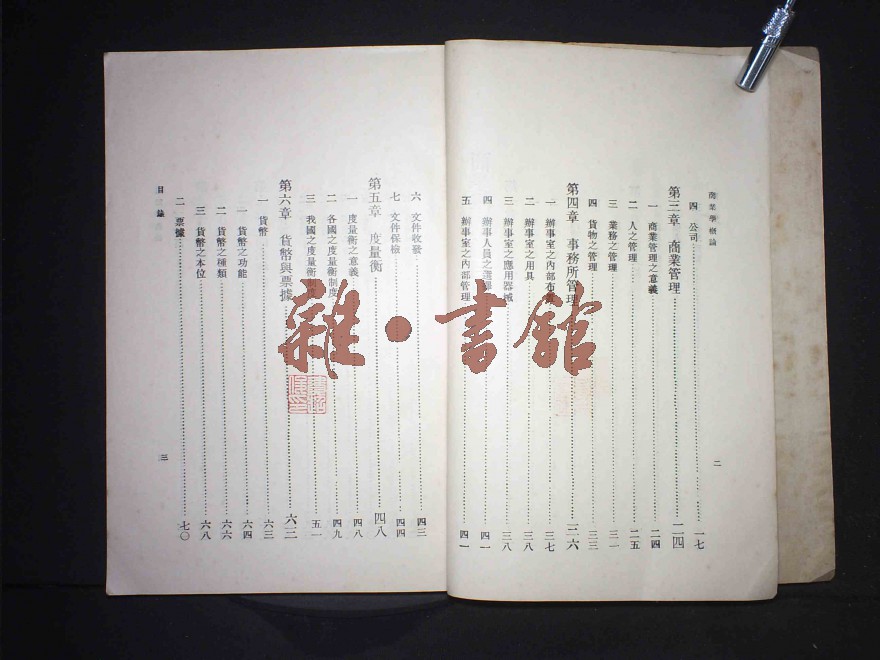 商業學概論
二
四 公司 一七
第三章 商業管理 二四
一 商業管理之意義 二四
二 人之管理 二五
三 業務之管理 三一
四 貨物之管理 三三
第四章 事務所管理 三六
一 辦事室之內部布 三七
二 辦事室之用具 三八
三 辦事室之應用器械 三八
四 辦事人員之選擇 四一
五 辦事室之內部管理 四一
六 文件收發 四三
七 文件保檢 四四
第五章 度量衡 四八
一 度量衡之意義 四八
二 各國之度量衡制度 四九
三 我國之度量衡制度 五一
第六章 貨幣與票據 六三
一 貨幣 六三
一 貨幣之功能 六四
二 貨幣之種類 六六
三 貨幣之本位 六八
二 票據 七〇
目錄
三
雜・書館